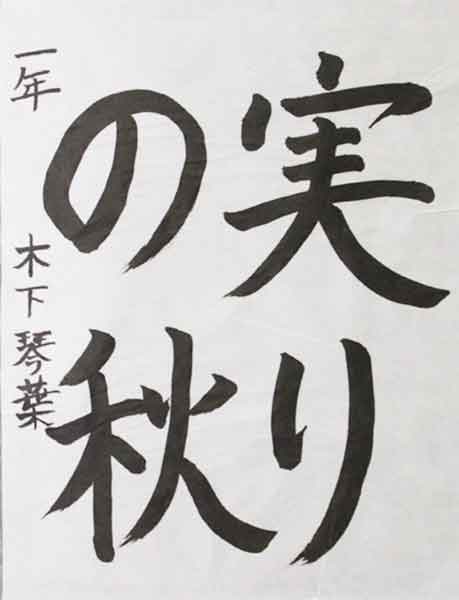 実り
の秋
一年 木下琴葉